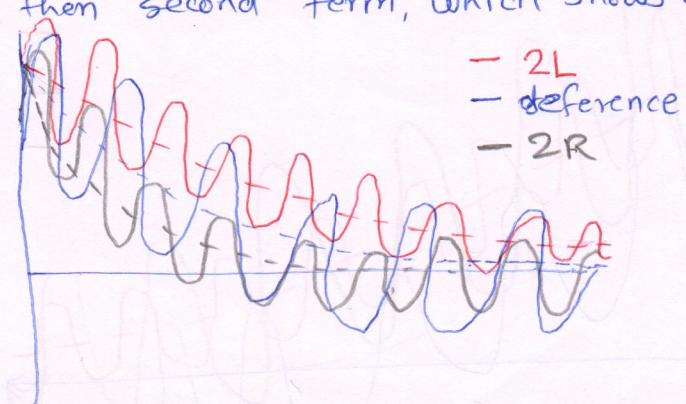 then second term, which shows
– 2L
– deference
– 2R